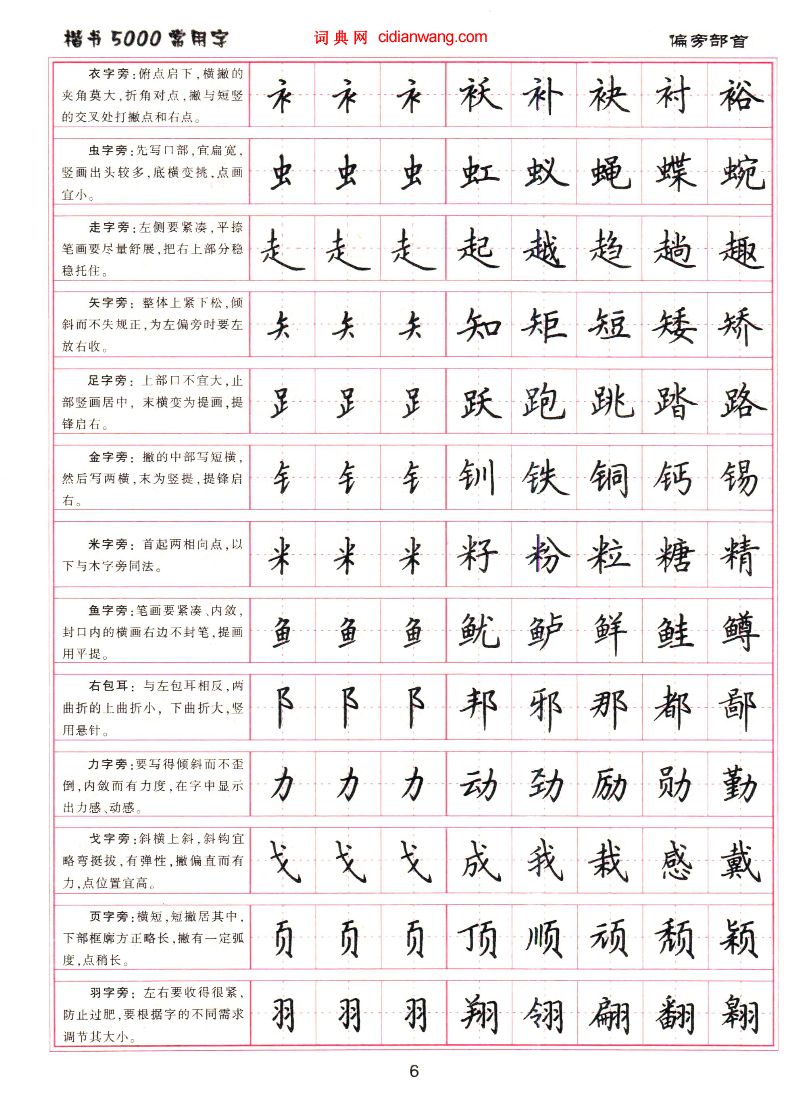 楷书5000常用字 词典网 cidianwang.com 偏旁部首
衣字旁:俯点启下,横撇的
夹角莫大,折角对点,撇与短竖
的交叉处打撇点和右点。
衤 衤 衤 袄 补 袂 衬 裕
虫字旁:先写口部,宜扁宽,
竖画出头较多,底横变挑,点画
宜小。
虫 虫 虫 虹 蚁 蝇 蝶 蜿
走字旁:左侧要紧凑,平捺
笔画要尽量舒展,把右上部分稳
稳托住。
走 走 走 起 越 趋 趟 趣
矢字旁:整体上紧下松,倾
斜而不失规正,为左偏旁时要左
放右收。
矢 矢 矢 知 矩 短 矮 矫
足字旁:上部口不宜大,止
部竖画居中,末横变为提画,提
锋启右。
𧾷 𧾷 𧾷 跃 跑 跳 踏 路
金字旁:撇的中部写短横,
然后写两横,末为竖提,提锋启
右。
钅 钅 钅 钏 铁 铜 钙 锡
米字旁:首起两相向点,以
下与木字旁同法。
米 米 米 籽 粉 粒 糖 精
鱼字旁:笔画要紧凑、内敛,
封口内的横画右边不封笔,提画
用平提。
鱼 鱼 鱼 鱿 鲈 鲜 鲑 鳟
右包耳:与左包耳相反,两
曲折的上曲折小,下曲折大,竖
用悬针。
阝 阝 阝 邦 邪 那 都 鄙
力字旁:要写得倾斜而不歪
倒,内敛而有力度,在字中显示
出力感、动感。
力 力 力 动 劲 励 勋 勤
戈字旁:斜横上斜,斜钩宜
略弯挺拔,有弹性,撇偏直而有
力,点位置宜高。
戈 戈 戈 成 我 栽 感 戴
页字旁:横短,短撇居其中,
下部框廓方正略长,撇有一定弧
度,点稍长。
页 页 页 顶 顺 顽 颓 颖
羽字旁:左右要收得很紧,
防止过肥,要根据字的不同需求
调节其大小。
羽 羽 羽 翔 翎 翩 翻 翱
6